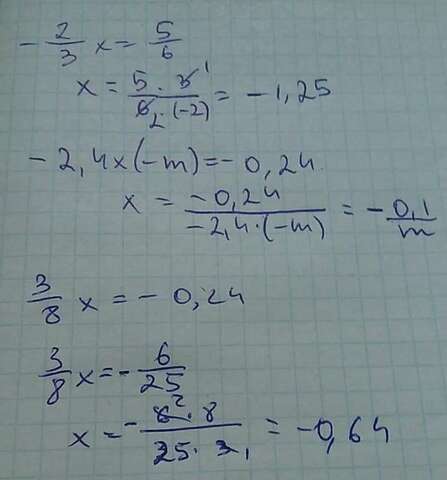 -2/3 x = 5/6
x = 5 · 3 1 / 6 2 · (-2) = -1,25
-2,4x(-m) = -0,24
x = -0,24 / -2,4·(-m) = -0,1/m
3/8 x = -0,24
3/8 x = -6/25
x = -6 2 · 8 / 25 · 3 1 = -0,64